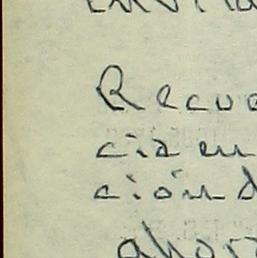 Recue
cia en
ción d
ahor